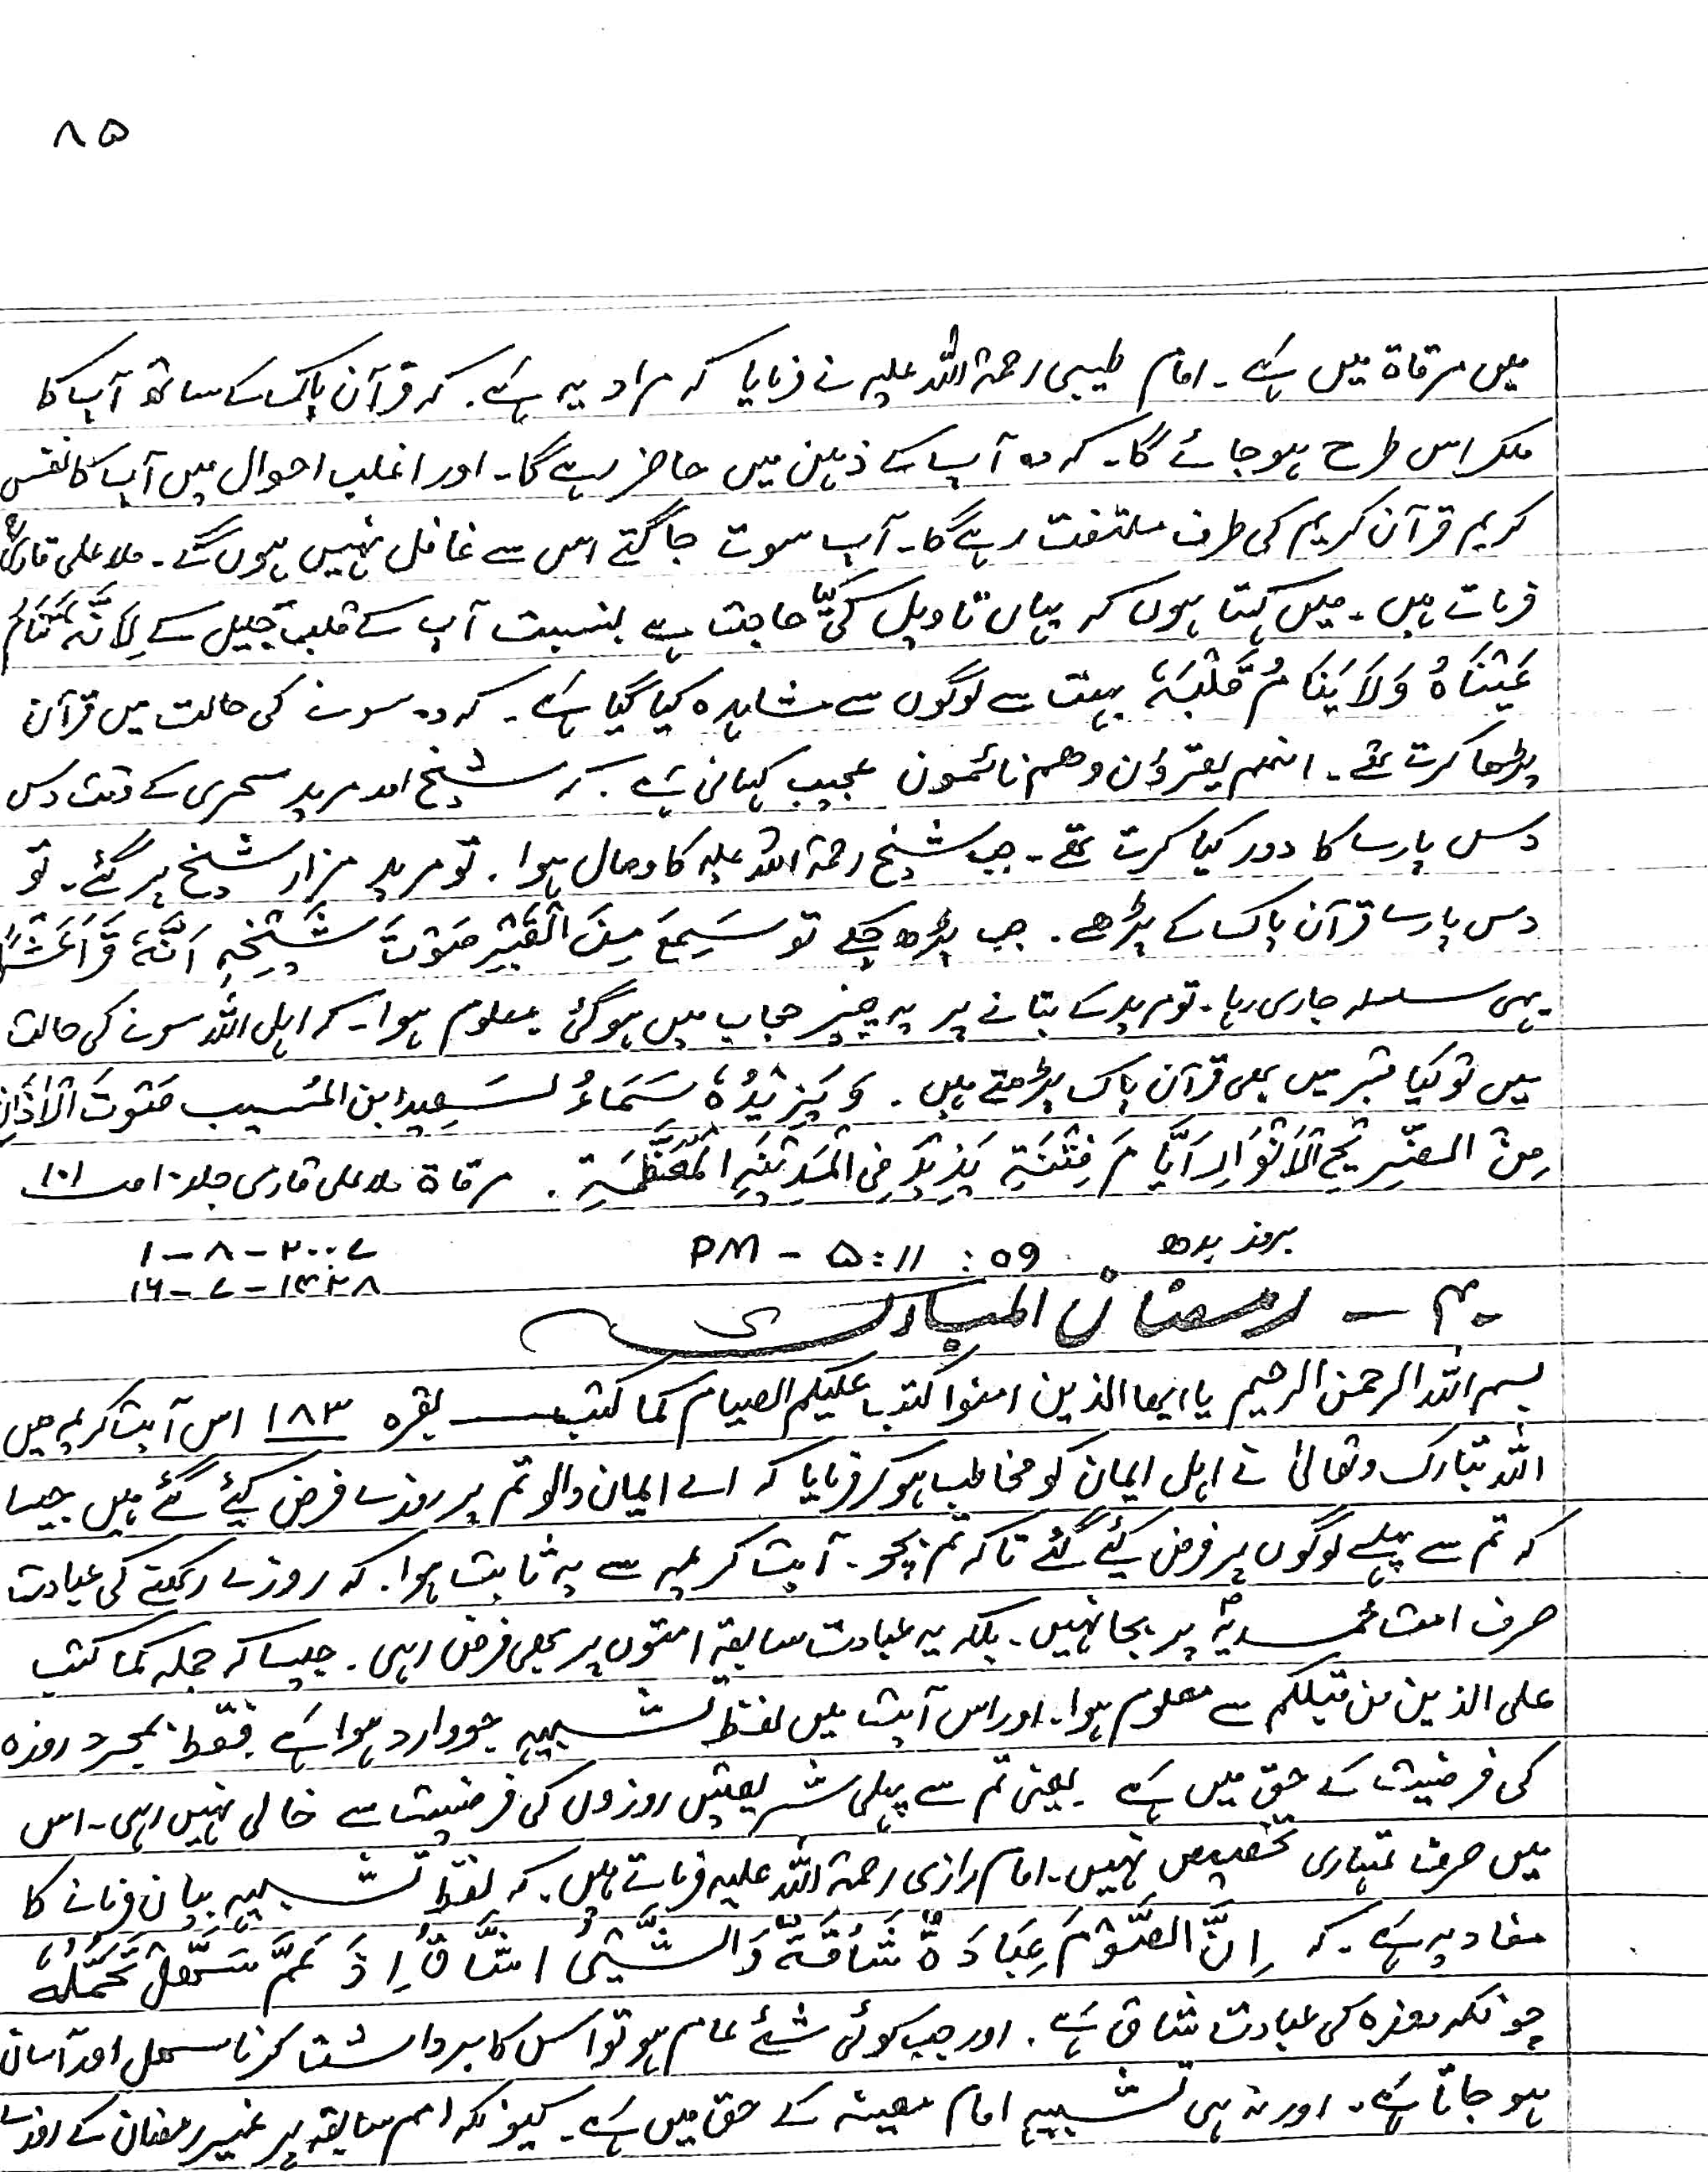 ۸۵
میں مرقاۃ میں ہے۔ امام طیبی رحمۃ اللہ علیہ نے فرمایا کہ مراد یہ ہے۔ کہ قرآن پاک کے ساتھ آپ کا
ملکہ اس طرح ہو جائے گا۔ کہ وہ آپ کے ذہن میں حاضر رہے گا۔ اور اغلب احوال میں آپ کا نفس
کریم قرآن کریم کی طرف ملتفت رہے گا۔ آپ سوتے جاگتے اس سے غافل نہیں ہوں گے۔ ملا علی قاری
فرماتے ہیں۔ میں کہتا ہوں کہ یہاں تاویل کی کیا حاجت ہے بنسبت آپ کے قلب جلیل کے لِاَنَّہٗ تَنَامُ
عَیْنَاہُ وَلَا یَنَامُ قَلْبُہٗ بہت سے لوگوں سے مشاہدہ کیا گیا ہے۔ کہ وہ سونے کی حالت میں قرآن
پڑھا کرتے تھے۔ انھم یقرؤن وھم نائمون عجیب کہانی ہے۔ کہ شیخ اور مرید سحری کے وقت دس
دس پارے کا دور کیا کرتے تھے۔ جب شیخ رحمۃ اللہ علیہ کا وصال ہوا۔ تو مرید مزار شیخ پر گئے۔ تو
دس پارے قرآن پاک کے پڑھے۔ جب پڑھ چکے تو سَمِعَ مِنَ الْقَبْرِ صَوْتَ شَیْخِہِ اَنَّہٗ قَرَأَ عَشْرًا
یہی سلسلہ جاری رہا۔ تو مرید کے بتانے پر یہ چیز حجاب میں ہو گئی معلوم ہوا۔ کہ اہل اللہ سونے کی حالت
میں تو کیا قبر میں بھی قرآن پاک پڑھتے ہیں۔ وَیَزِیْدُہٗ سَمَاءُ سَعِید ابن المُسیب صَوْتَ الْاَذَانِ
مِنَ الضَّرِیْحِ الْاَنْوَارِ اَیَّامَ فِتْنَۃِ یَزِیْدَ فِی الْمَدِیْنَۃِ الْمُعَظَّمَۃِ۔ مرقاۃ ملا علی قاری جلد ۱۰ صـ ۱۰۱
بروز بدھ PM - ۵:۱۱ :۵۹ ۱-۸-۲۰۰۷
۱۶-۷-۱۴۲۸
۴۰ - رمضان المبارک
بسم اللہ الرحمن الرحیم یا ایھا الذین امنوا کتب علیکم الصیام کما کتب ــــ بقرہ ۱۸۳ اس آیت کریمہ میں
اللہ تبارک وتعالیٰ نے اہل ایمان کو مخاطب ہو کر فرمایا کہ اے ایمان والو تم پر روزے فرض کیے گئے ہیں جیسا
کہ تم سے پہلے لوگوں پر فرض کیے گئے تاکہ تم بچو۔ آیت کریمہ سے یہ ثابت ہوا۔ کہ روزے رکھنے کی عبادت
صرف امت محمدیہؐ پر بجا نہیں۔ بلکہ یہ عبادت سابقہ امتوں پر بھی فرض رہی۔ جیسا کہ جملہ کما کتب
علی الذین من قبلکم سے معلوم ہوا۔ اور اس آیت میں لفظ تشبیہ جو وارد ہوا ہے۔ فقط بمجرد روزہ
کی فرضیت کے حق میں ہے یعنی تم سے پہلی شریعتیں روزوں کی فرضیت سے خالی نہیں رہی۔ اس
میں صرف تمہاری تخصیص نہیں۔ امام رازی رحمۃ اللہ علیہ فرماتے ہیں۔ کہ لفظ تشبیہ بیان فرمانے کا
مفاد یہ ہے۔ کہ اِنَّ الصَّوْمَ عِبَادَۃٌ شَاقَّۃٌ وَالشَّیْئُ الشَّاقُ اِذَ عَمَّ سَھُلَ تَحَمُّلُہٗ
چونکہ روزہ کی عبادت شاق ہے۔ اور جب کوئی شئے عام ہو تو اس کا برداشت کرنا سھل اور آسان
ہو جاتا ہے۔ اور نہ ہی تشبیہ امام معینہ کے حق میں ہے۔ کیونکہ امم سابقہ پر غیر رمضان کے روزے